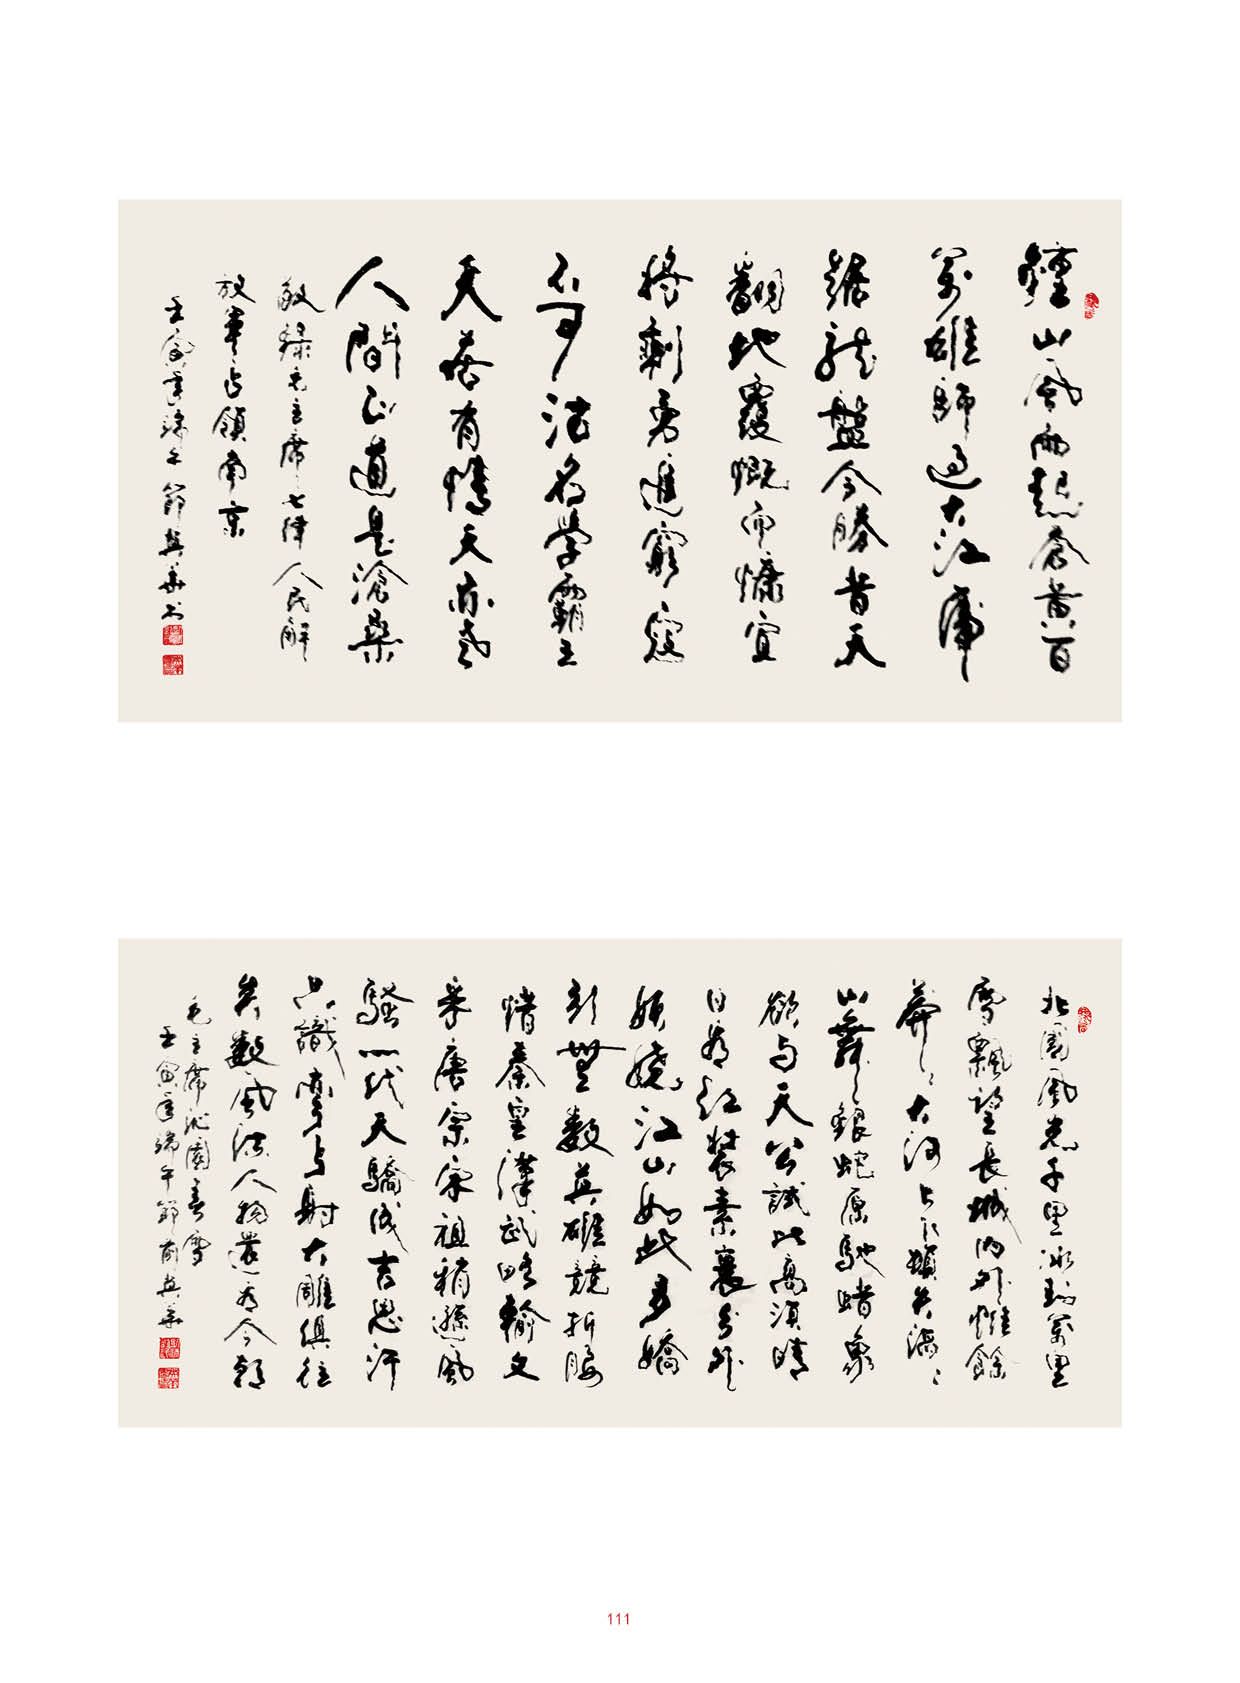 鍾山風雨起蒼黃百
萬雄師過大江虎
踞龍盤今勝昔天
翻地覆慨而慷宜
將剩勇追窮寇
不可沽名學霸王
天若有情天亦老
人間正道是滄桑
敬錄毛主席七律人民解
放軍占領南京
壬寅年端午節英華書
北國風光千里冰封萬里
雪飄望長城內外惟餘
莽〻大河上下頓失滔〻
山舞銀蛇原馳蠟象
欲与天公試比高須晴
日看紅裝素裹分外
妖嬈江山如此多嬌
引無數英雄競折腰
惜秦皇漢武略輸文
采唐宗宋祖稍遜風
騷一代天驕成吉思汗
只識彎弓射大雕俱往
矣數風流人物還看今朝
毛主席沁園春雪
壬寅年端午節前英華
111